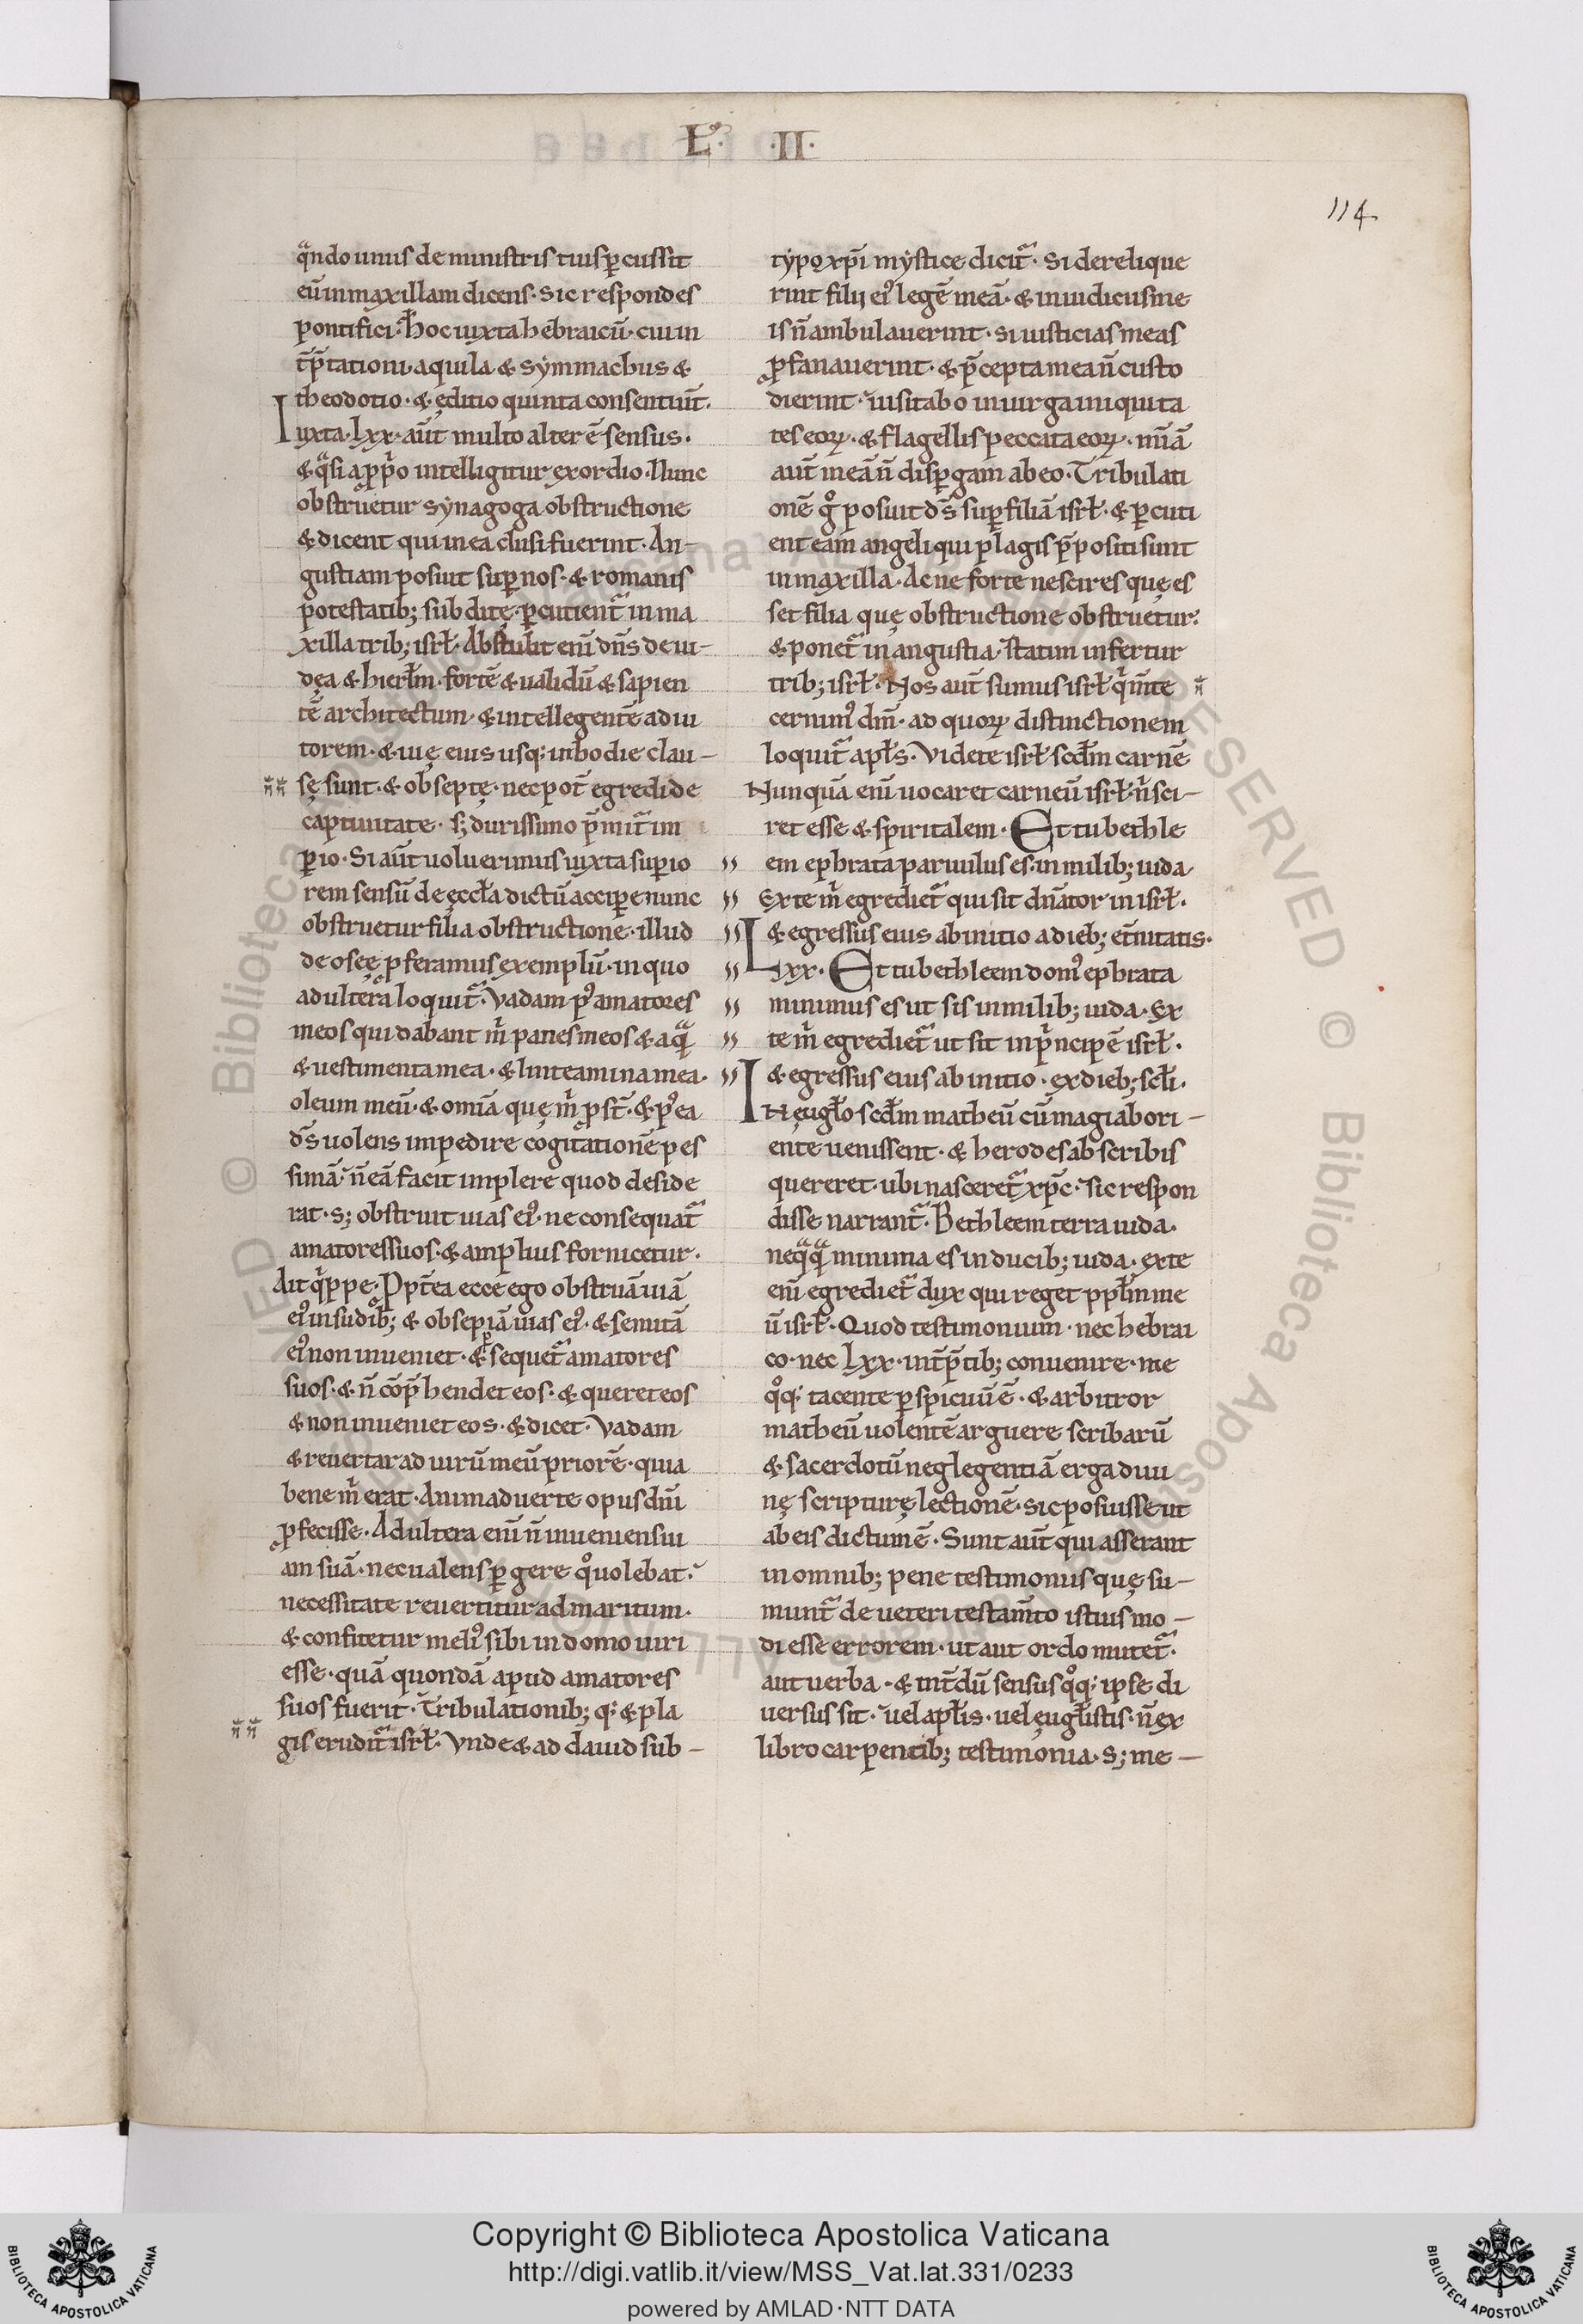 L. .II.
114
q̄ndo unus de ministris tuis ꝑcussit
eū in maxillam dicens. Sic respondes
pontifici. Hoc iuxta hebraicū. cui in
t̄p̄tationi aquila & symmachus &
theodotio. & editio quinta consentiūt.
Iuxta. Lxx. aūt multo alter ē sensus.
& q̄si a ꝓp̄o intelligitur exordio. Nunc
obstruetur synagoga obstructione
& dicent qui in ea clusi fuerint. An-
gustiam posuit suꝑ nos. & romanis
potestatib; subditę. ꝑcutient̄ in ma
xilla trib; isrł. Abstulit enī dn̄s de iu-
dęa & hierłm. fortē & ualidū & sapien
tē architectum. & intellegentē adiu
torem. & uię eius usq; in hodie clau-
sę sunt. & obseptę. nec pot̄ egredi de
captiuitate. s; durissimo p̄mit̄ im
ꝑio. Si aūt uoluerimus iuxta suꝑio
rem sensū de ęccła dictū acciꝑe nunc
obstruetur filia obstructione. illud
de osee ꝓferamus exemplū. in quo
adultera loquit̄. Vadam p' amatores
meos qui dabant m̄ panes meos & aq̄
& uestimenta mea. & linteamina mea.
oleum meū. & omīa quę m̄ ꝓst̄. & p' ea
ds̄ uolens impedire cogitationē pes
simā. n̄ eā facit implere quod deside
rat. s; obstruit uias ei'. ne consequat̄
amatores suos. & amplius fornicetur.
Ait q̄ppe. Ppt̄ea ecce ego obstruā uiā
ei' in sudib; & obsepiā uias ei'. & semitā
ei' non inueniet. & ꝑsequet̄ amatores
suos. & n̄ cōp̄hendet eos. & queret eos
& non inueniet eos. & dicet. Vadam
& reuertar ad uirū meū priorē. quia
bene m̄ erat. Animaduerte opus dn̄i
ꝓfecisse. Adultera enī n̄ inueniens ui
am suā. nec ualens ꝑgere q° uolebat.
necessitate reuertitur ad maritum.
& confitetur meli' sibi in domo uiri
esse. quā quondā apud amatores
suos fuerit. Tribulationib; q; & pla
gis erudit̄ isrł. Vnde & ad dauid sub-
typo xp̄i mystice dicit̄. Si derelique
rint filii ei' legē meā. & in iudiciis me
is n̄ ambulauerint. si iusticias meas
ꝓfanauerint. & p̄cepta mea n̄ custo
dierint. uisitabo in uirga iniquita
tes eoꝝ. & flagellis peccata eoꝝ. mīā
aūt meā n̄ disꝑgam ab eo. Tribulati
onē g° posuit ds̄ suꝑ filiā isrł. & ꝑcuti
ent eam angeli qui plagis p̄positi sunt
in maxilla. Ac ne forte nescires quę es
set filia quę obstructione obstruetur.
& ponet̄ in angustia. statim infertur
trib; isrł. Nos aūt sumus isrł q̄ m̄te
cernim' dm̄. ad quoꝝ distinctionem
loquit̄ apłs. Videte isrł scdm̄ carnē
Nunquā enī uocaret carneū isrł. n̄ sci-
ret esse & spiritalem. Et tu bethle
em ephrata paruulus es in milib; iuda
Ex te m̄ egrediet̄ qui sit dn̄ator in isrł.
& egressus eius ab initio a dieb; et̄nitatis.
Lxx. Et tu bethleem dom' ephrata
minimus es ut sis in milib; iuda. Ex
te m̄ egrediet̄ ut sit in p̄ncipē isrł.
& egressus eius ab initio. ex dieb; scłi.
IN ęugło scdm̄ matheū cū magi ab ori-
ente uenissent. & herodes ab scribis
quereret. ubi nasceret̄ xp̄c. sic respon
disse narrant̄. Bethleem terra iuda.
neq̄q̄ minima es in ducib; iuda. ex te
enī egrediet̄ dux qui reget ppłm me
ū isrł. Quod testimonium. nec hebrai
co. nec Lxx. int̄p̄tib; conuenire. me
q°q; tacente ꝑspicuū ē. & arbitror
matheū uolentē arguere scribarū
& sacerdotū neglegentiā erga diui
nę scripturę lectionē. sic posuisse ut
ab eis dictum ē. Sunt aūt qui asserant
in omnib; pene testimoniis quę su-
munt̄ de ueteri testam̄to istius mo-
di esse errorem. ut aut ordo mutet̄.
aut uerba. & int̄dū sensus q°q; ipse di
uersus sit. uel apłis. uel ęugłistis. n̄ ex
libro carpentib; testimonia. S; me-
Copyright © Biblioteca Apostolica Vaticana
http://digi.vatlib.it/view/MSS_Vat.lat.331/0233
powered by AMLAD·NTT DATA
BIBLIOTECA APOSTOLICA VATICANA
BIBLIOTECA APOSTOLICA VATICANA